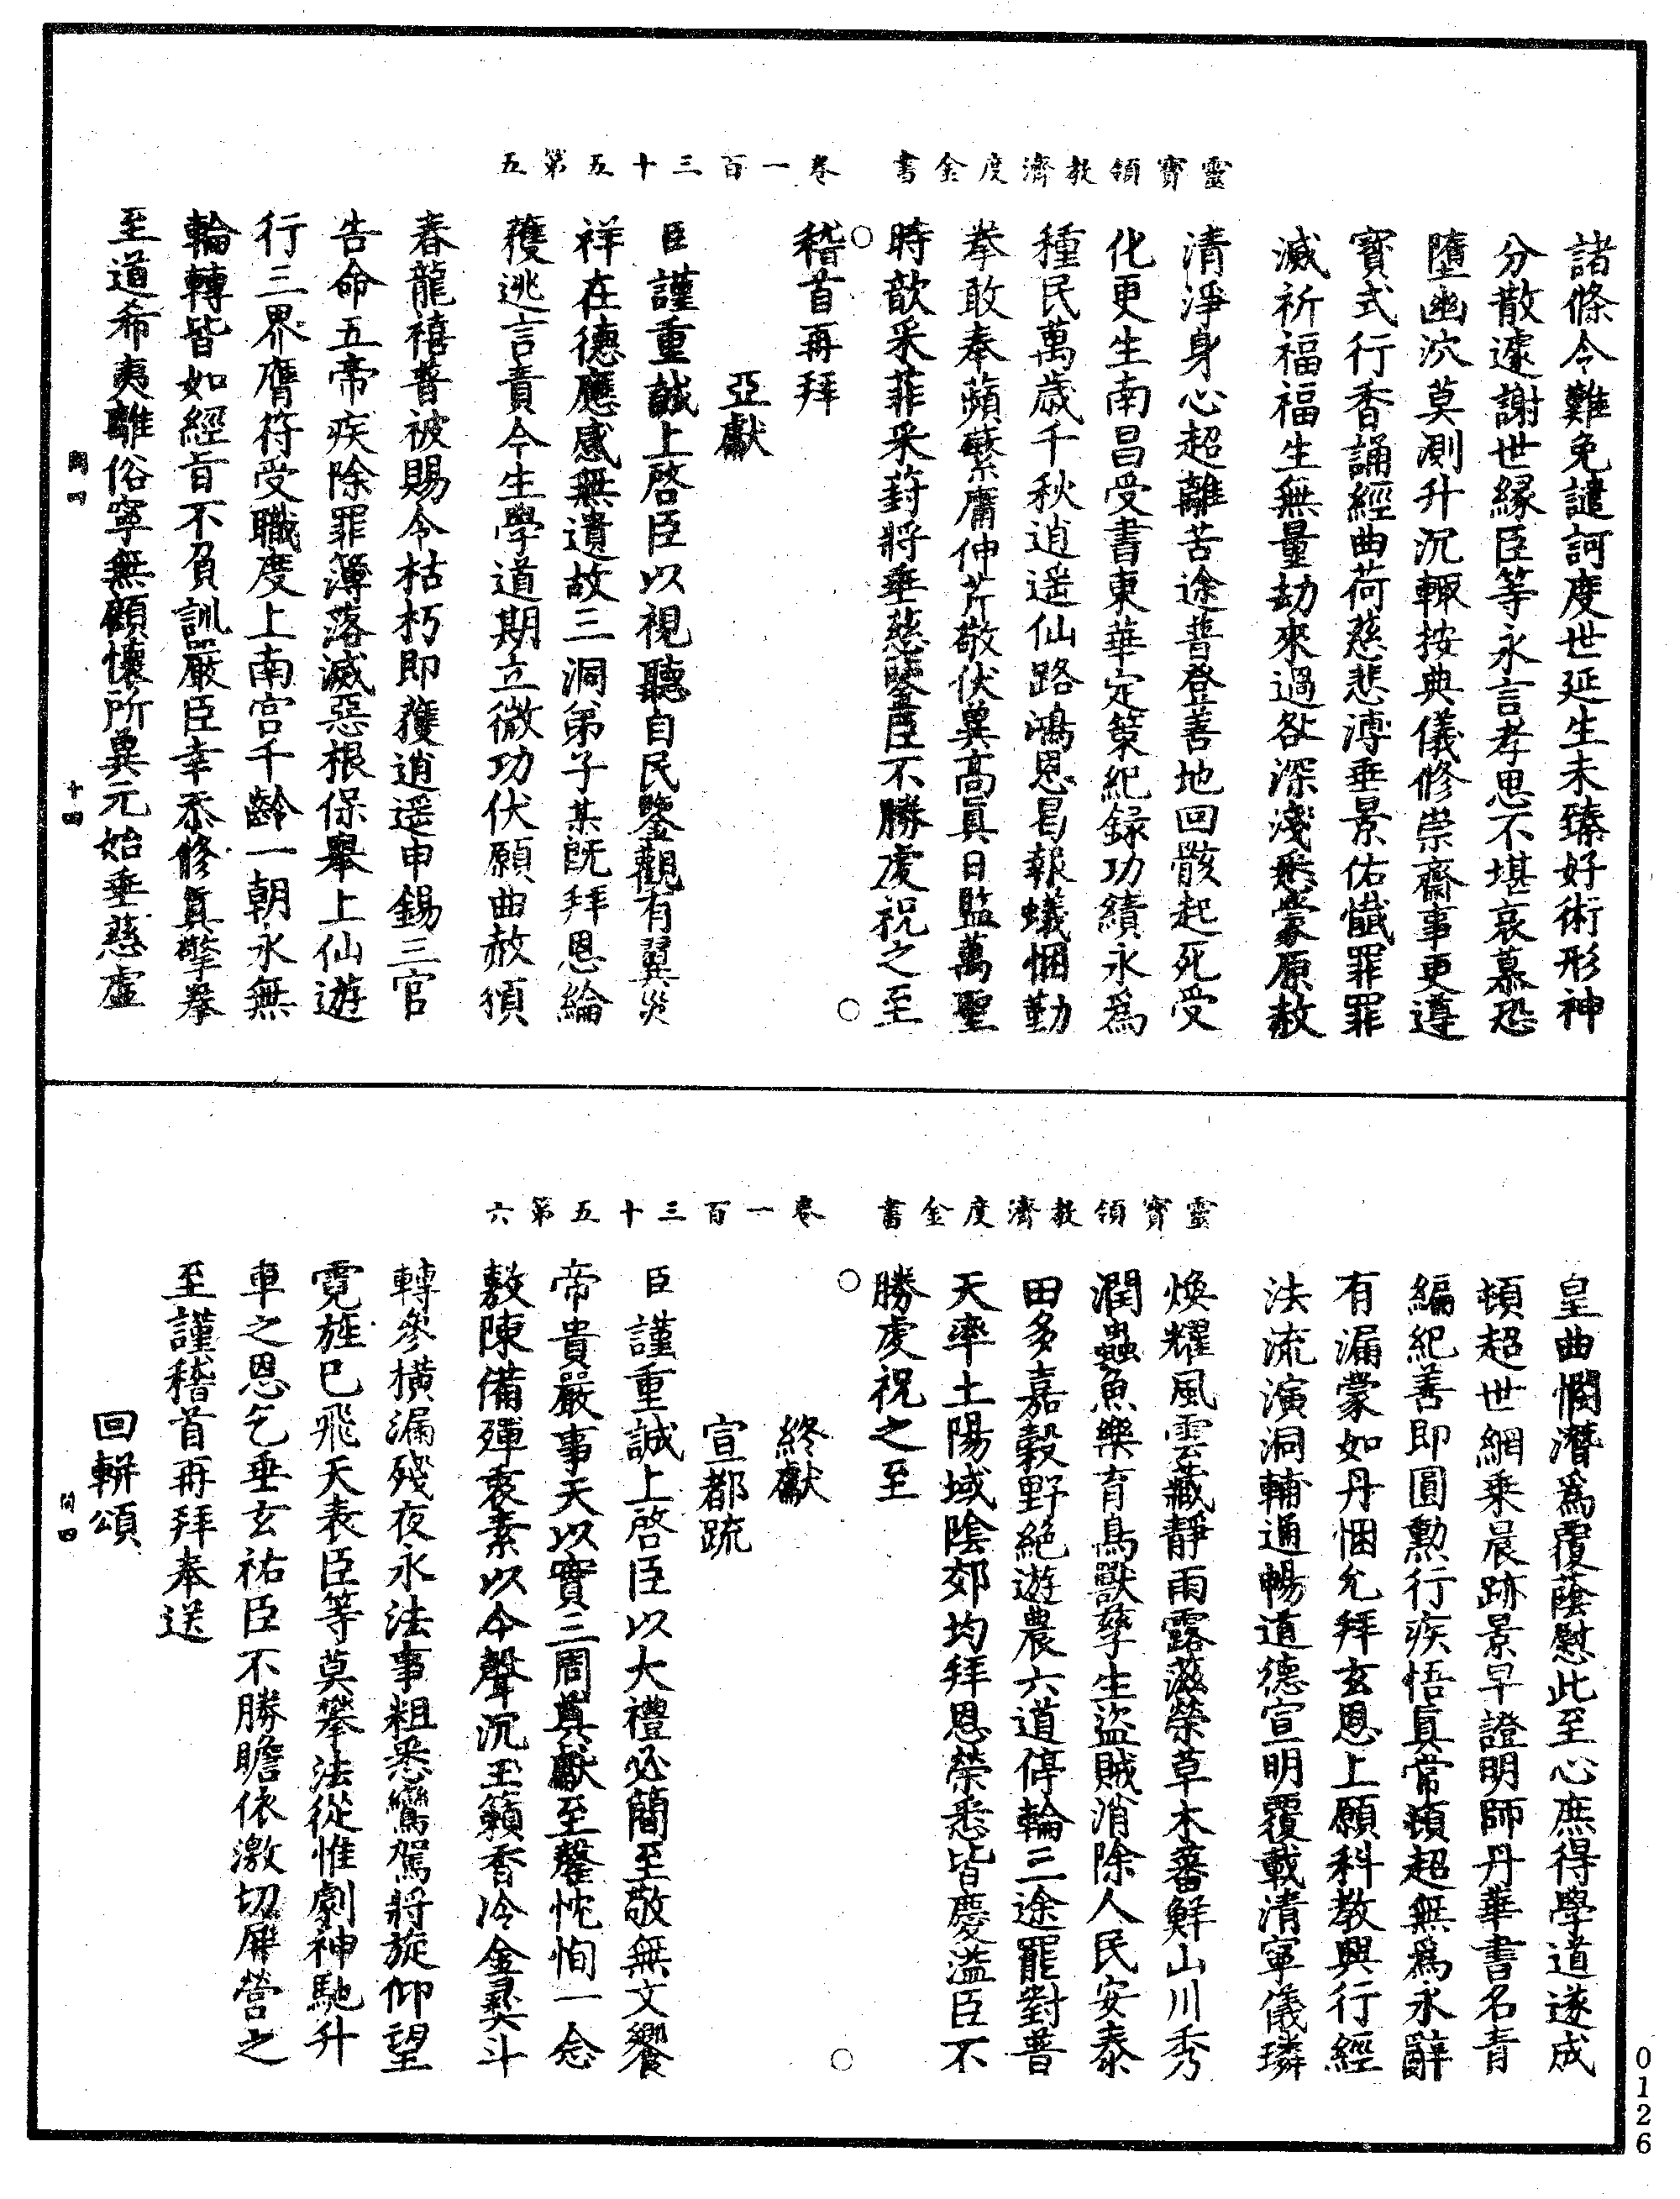 靈寶領教濟度金書　卷一百三十五第五
諸條令難免譴訶度世延生未臻好術形神
分散遽謝世緣臣等永言孝思不堪哀慕恐
墮幽泬莫測升沉輒按典儀修崇齋事更遵
寶式行香誦經曲荷慈悲溥垂景佑懺罪罪
滅祈福福生無量劫來過咎深淺悉蒙原赦
清淨身心超離苦途普登善地回骸起死受
化更生南昌受書東華定筞紀録功績永爲
種民萬歲千秋逍遥仙路鴻恩曷報蟻悃勤
拳敢奉蘋蘩庸伸芹敬伏兾高真日監萬聖
時歆采菲采葑將垂慈鑒臣不勝虔祝之至
稽首再拜
亞獻
臣謹重誠上啓臣以視聽自民鑒觀有翼災
祥在德應感無遺故三洞弟子某既拜恩綸
獲逃言責今生學道期立微功伏願曲赦頒
春龍禧普被賜令枯朽即獲逍遥申錫三官
告命五帝疾除罪簿落滅惡根保舉上仙遊
行三界膺符受職度上南宫千齡一朝永無
輪轉皆如經旨不負訓嚴臣幸忝修真擎拳
至道希夷離俗寜無顧懷所兾元始垂慈虛
十四
靈寶領教濟度金書　卷一百三十五第六
皇曲憫潛爲覆蔭慰此至心庶得學道遂成
頓超世網乘晨跡景早證明師丹華書名青
編紀善即圓勲行疾悟真常頓超無爲永辭
有漏蒙如丹悃允拜玄恩上願科教興行經
法流演洞輔通暢道德宣明覆載清寧儀璘
煥耀風雲藏靜雨露滋榮草木蕃鮮山川秀
潤蟲魚樂育鳥獸孳生盜賊消除人民安泰
田多嘉穀野絶遊農六道停輪三途罷對普
天率土陽域陰郊均拜恩榮悉皆慶溢臣不
勝虔祝之至
終獻
宣都疏
臣謹重誠上啓臣以大禮必簡至敬無文饗
帝貴嚴事天以實三周奠獻至罄忱恂一念
敷陳備殫衷素以今聲沉玉籟香冷金猊斗
轉參横漏殘夜永法事粗悉鸞駕將旋仰望
霓旌已飛天表臣等莫攀法從惟劇神馳升
車之恩乞垂玄祐臣不勝瞻依激切屏營之
至謹稽首再拜奉送
回輧頌
0126